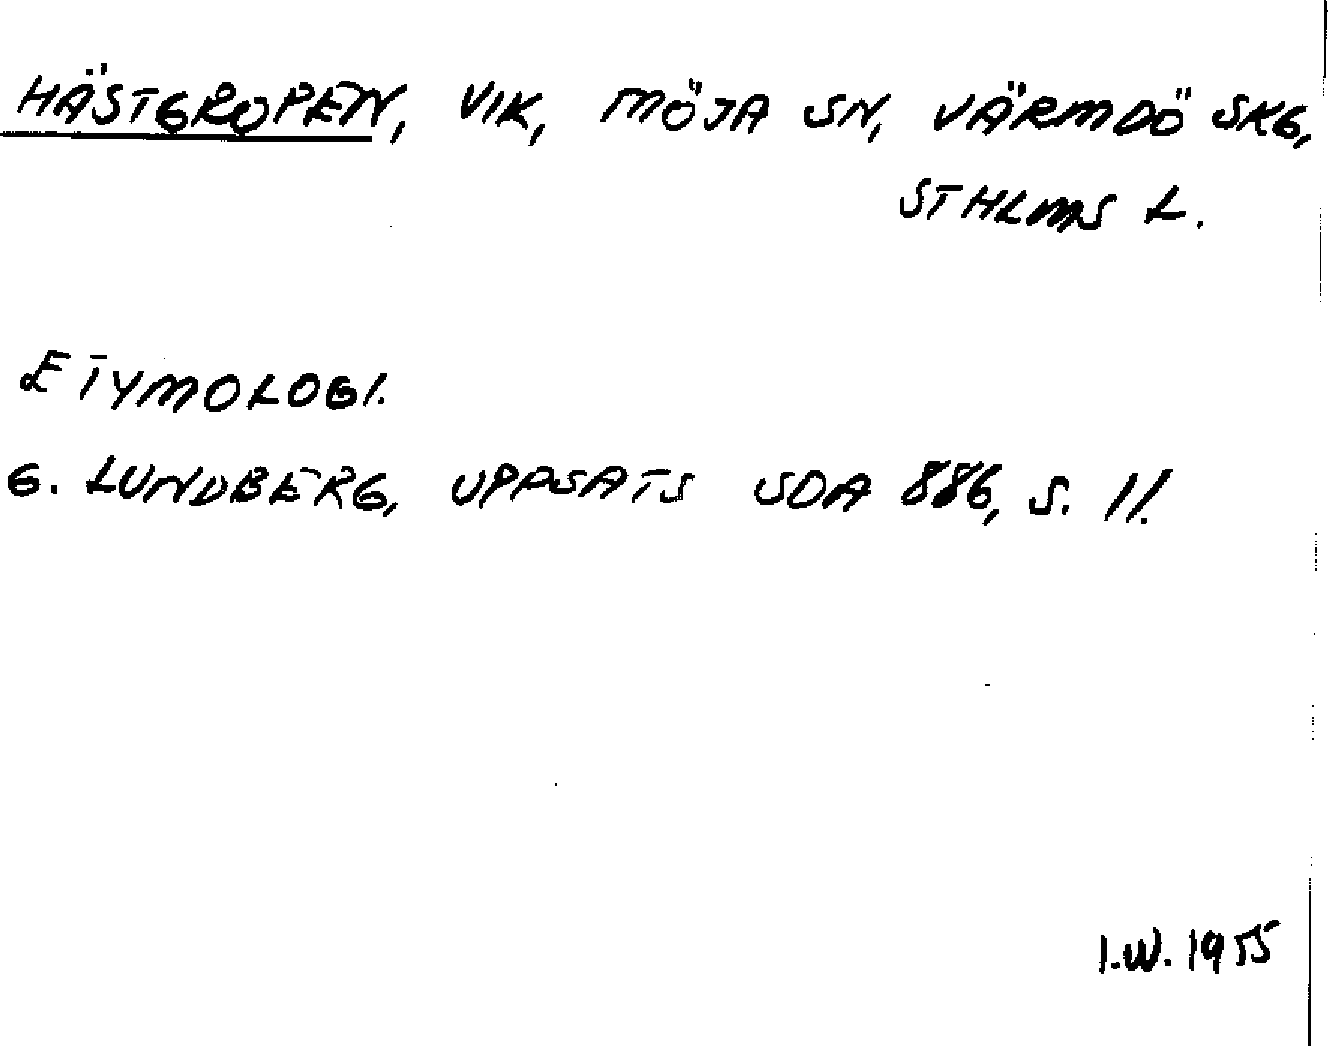 HÄSTGROPEN, VIK, MÖJA SN, VÄRMDÖ SKG,
STHLMS L.
ETYMOLOGI.
G. LUNDBERG, UPPSATS SOA 886, S. 11.
I.W. 1955